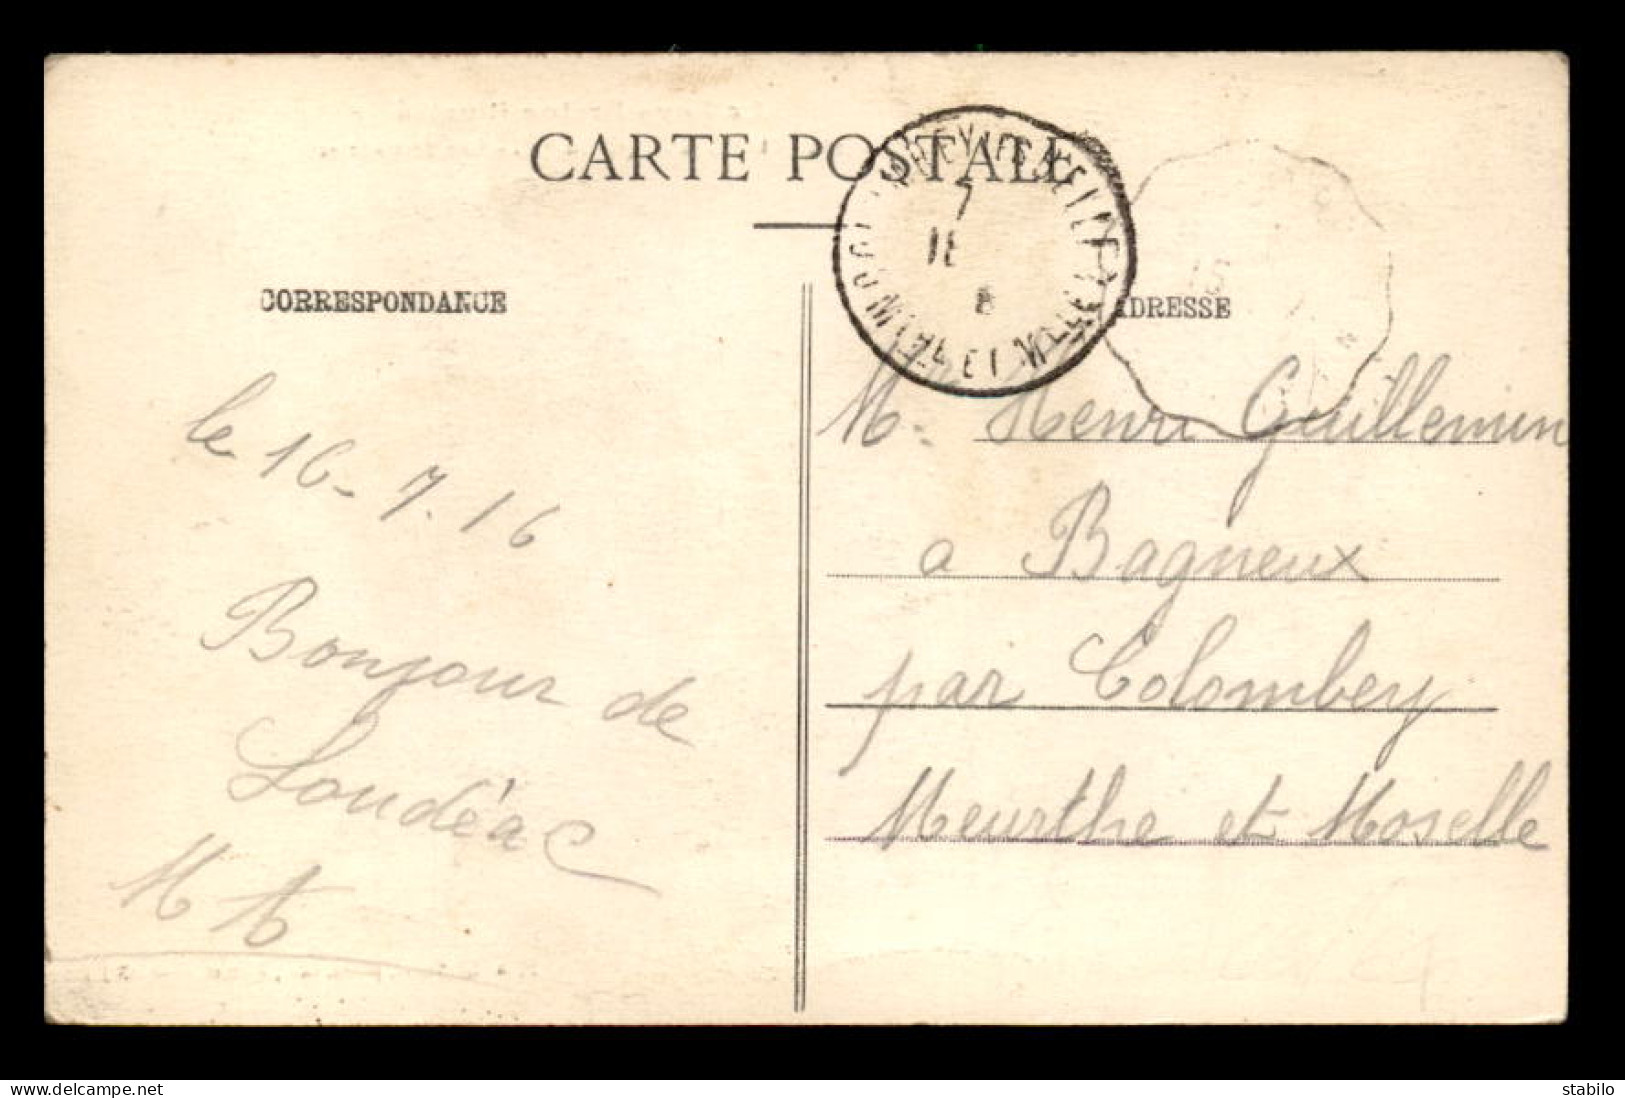 CARTE POSTALE
CORRESPONDANCE
ADRESSE
le 16-7.16
Bonjour de
Loudéac
M. Henri Guillemin
a Bagneux
par Colombey
Meurthe et Moselle
delcampe.net
stabilo